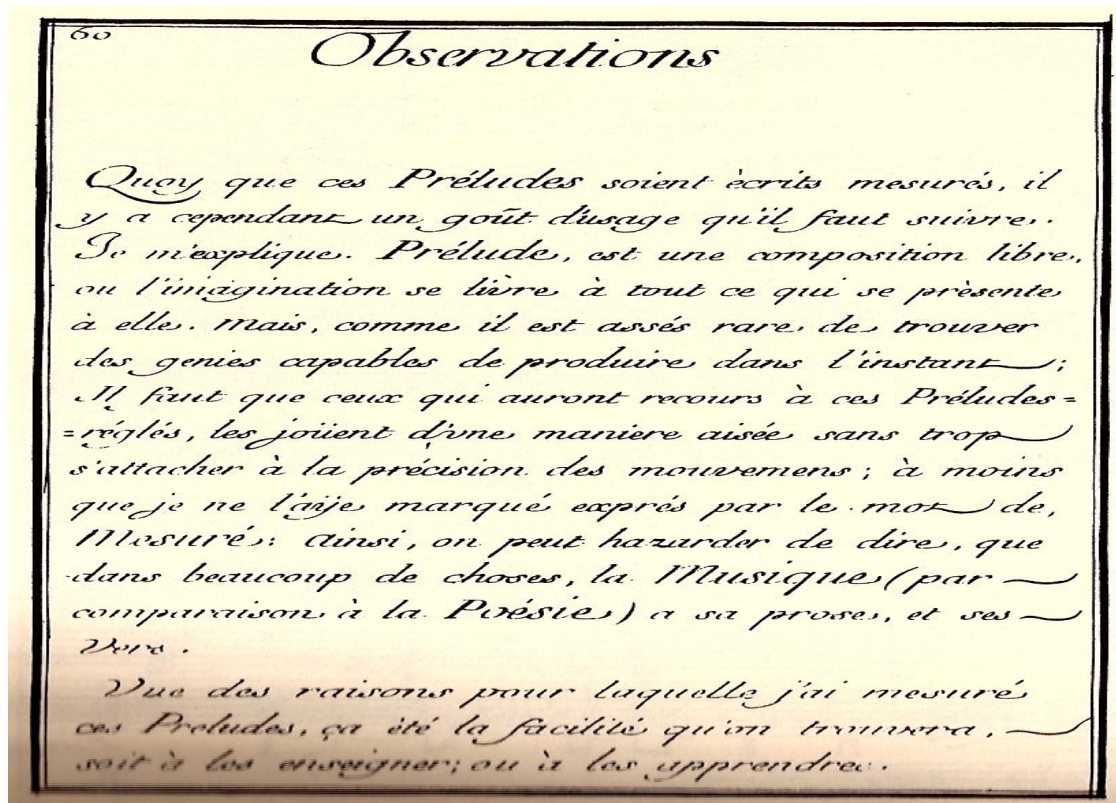 60
Observations
Quoy que ces Préludes soient ècrits mesurés, il
y a cependant un goût d'usage qu'il faut suivre.
Je m'explique. Prélude, est une composition libre,
ou l'imagination se livre à tout ce qui se prèsente
à elle. Mais, comme il est assés rare de trouver
des genies capables de produire dans l'instant;
Il faut que ceux qui auront recours à ces Préludes=
=réglés, les joüent d'vne maniere aisée sans trop
s'attacher à la précision des mouvemens; à moins
que je ne l'aije marqué exprés par le mot de,
Mesuré: Ainsi, on peut hazarder de dire, que
dans beaucoup de choses, la Musique (par
comparaison à la Poésie) a sa prose, et ses
Vers.
Vne des raisons pour laquelle j'ai mesuré
ces Preludes, ça èté la facilité qu'on trouvera,
soit à les enseigner; ou à les apprendre.